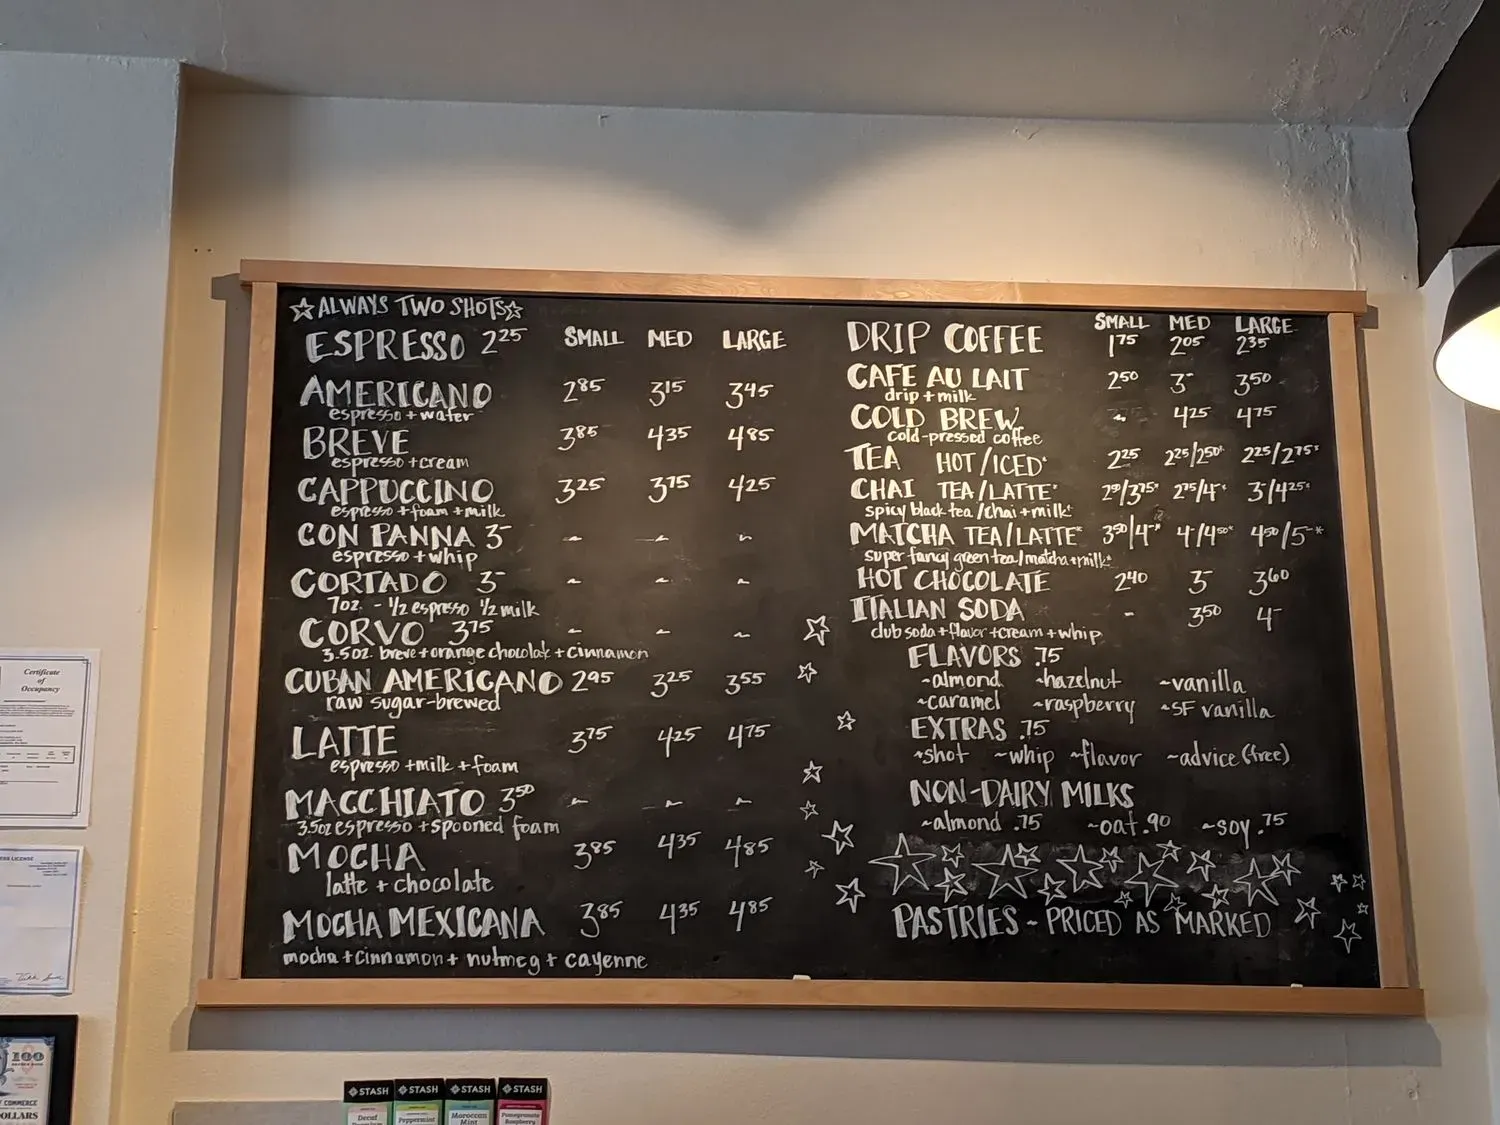 ☆ALWAYS TWO SHOTS☆
ESPRESSO 2.25 SMALL MED LARGE
AMERICANO 2.85 3.15 3.45
espresso + water
BREVE 3.85 4.35 4.85
espresso + cream
CAPPUCCINO 3.25 3.75 4.25
espresso + foam + milk
CON PANNA 3- ~ ~ ~
espresso + whip
CORTADO 3- ~ ~ ~
7oz. - 1/2 espresso 1/2 milk
CORVO 3.75 ~ ~ ~
3.5oz. breve + orange chocolate + cinnamon
CUBAN AMERICANO 2.95 3.25 3.55
raw sugar-brewed
LATTE 3.75 4.25 4.75
espresso + milk + foam
MACCHIATO 3.50 ~ ~ ~
3.5oz espresso + spooned foam
MOCHA 3.85 4.35 4.85
latte + chocolate
MOCHA MEXICANA 3.85 4.35 4.85
mocha + cinnamon + nutmeg + cayenne
SMALL MED LARGE
DRIP COFFEE 1.75 2.05 2.35
CAFE AU LAIT 2.50 3- 3.50
drip + milk
COLD BREW ~ 4.25 4.75
cold-pressed coffee
TEA HOT/ICED* 2.25 2.25/2.50* 2.25/2.75*
CHAI TEA/LATTE* /3.75* 2.75/4-* 3-/4.25*
spicy black tea/chai + milk*
MATCHA TEA/LATTE* 3.50/4-* 4-/4.50* 4.50/5-*
super fancy green tea/matcha + milk*
HOT CHOCOLATE 2.40 3- 3.60
ITALIAN SODA - 3.50 4-
club soda + flavor + cream + whip
FLAVORS .75
~almond ~hazelnut ~vanilla
~caramel ~raspberry ~SF vanilla
EXTRAS .75
~shot ~whip ~flavor ~advice (free)
NON-DAIRY MILKS
~almond .75 ~oat .90 ~soy .75
PASTRIES ~ PRICED AS MARKED
Certificate
of
Occupancy
LICENSE
100
COMMERCE
DOLLARS
STASH STASH STASH STASH
Decaf
Peppermint
Moroccan
Mint
Pomegranate
Raspberry